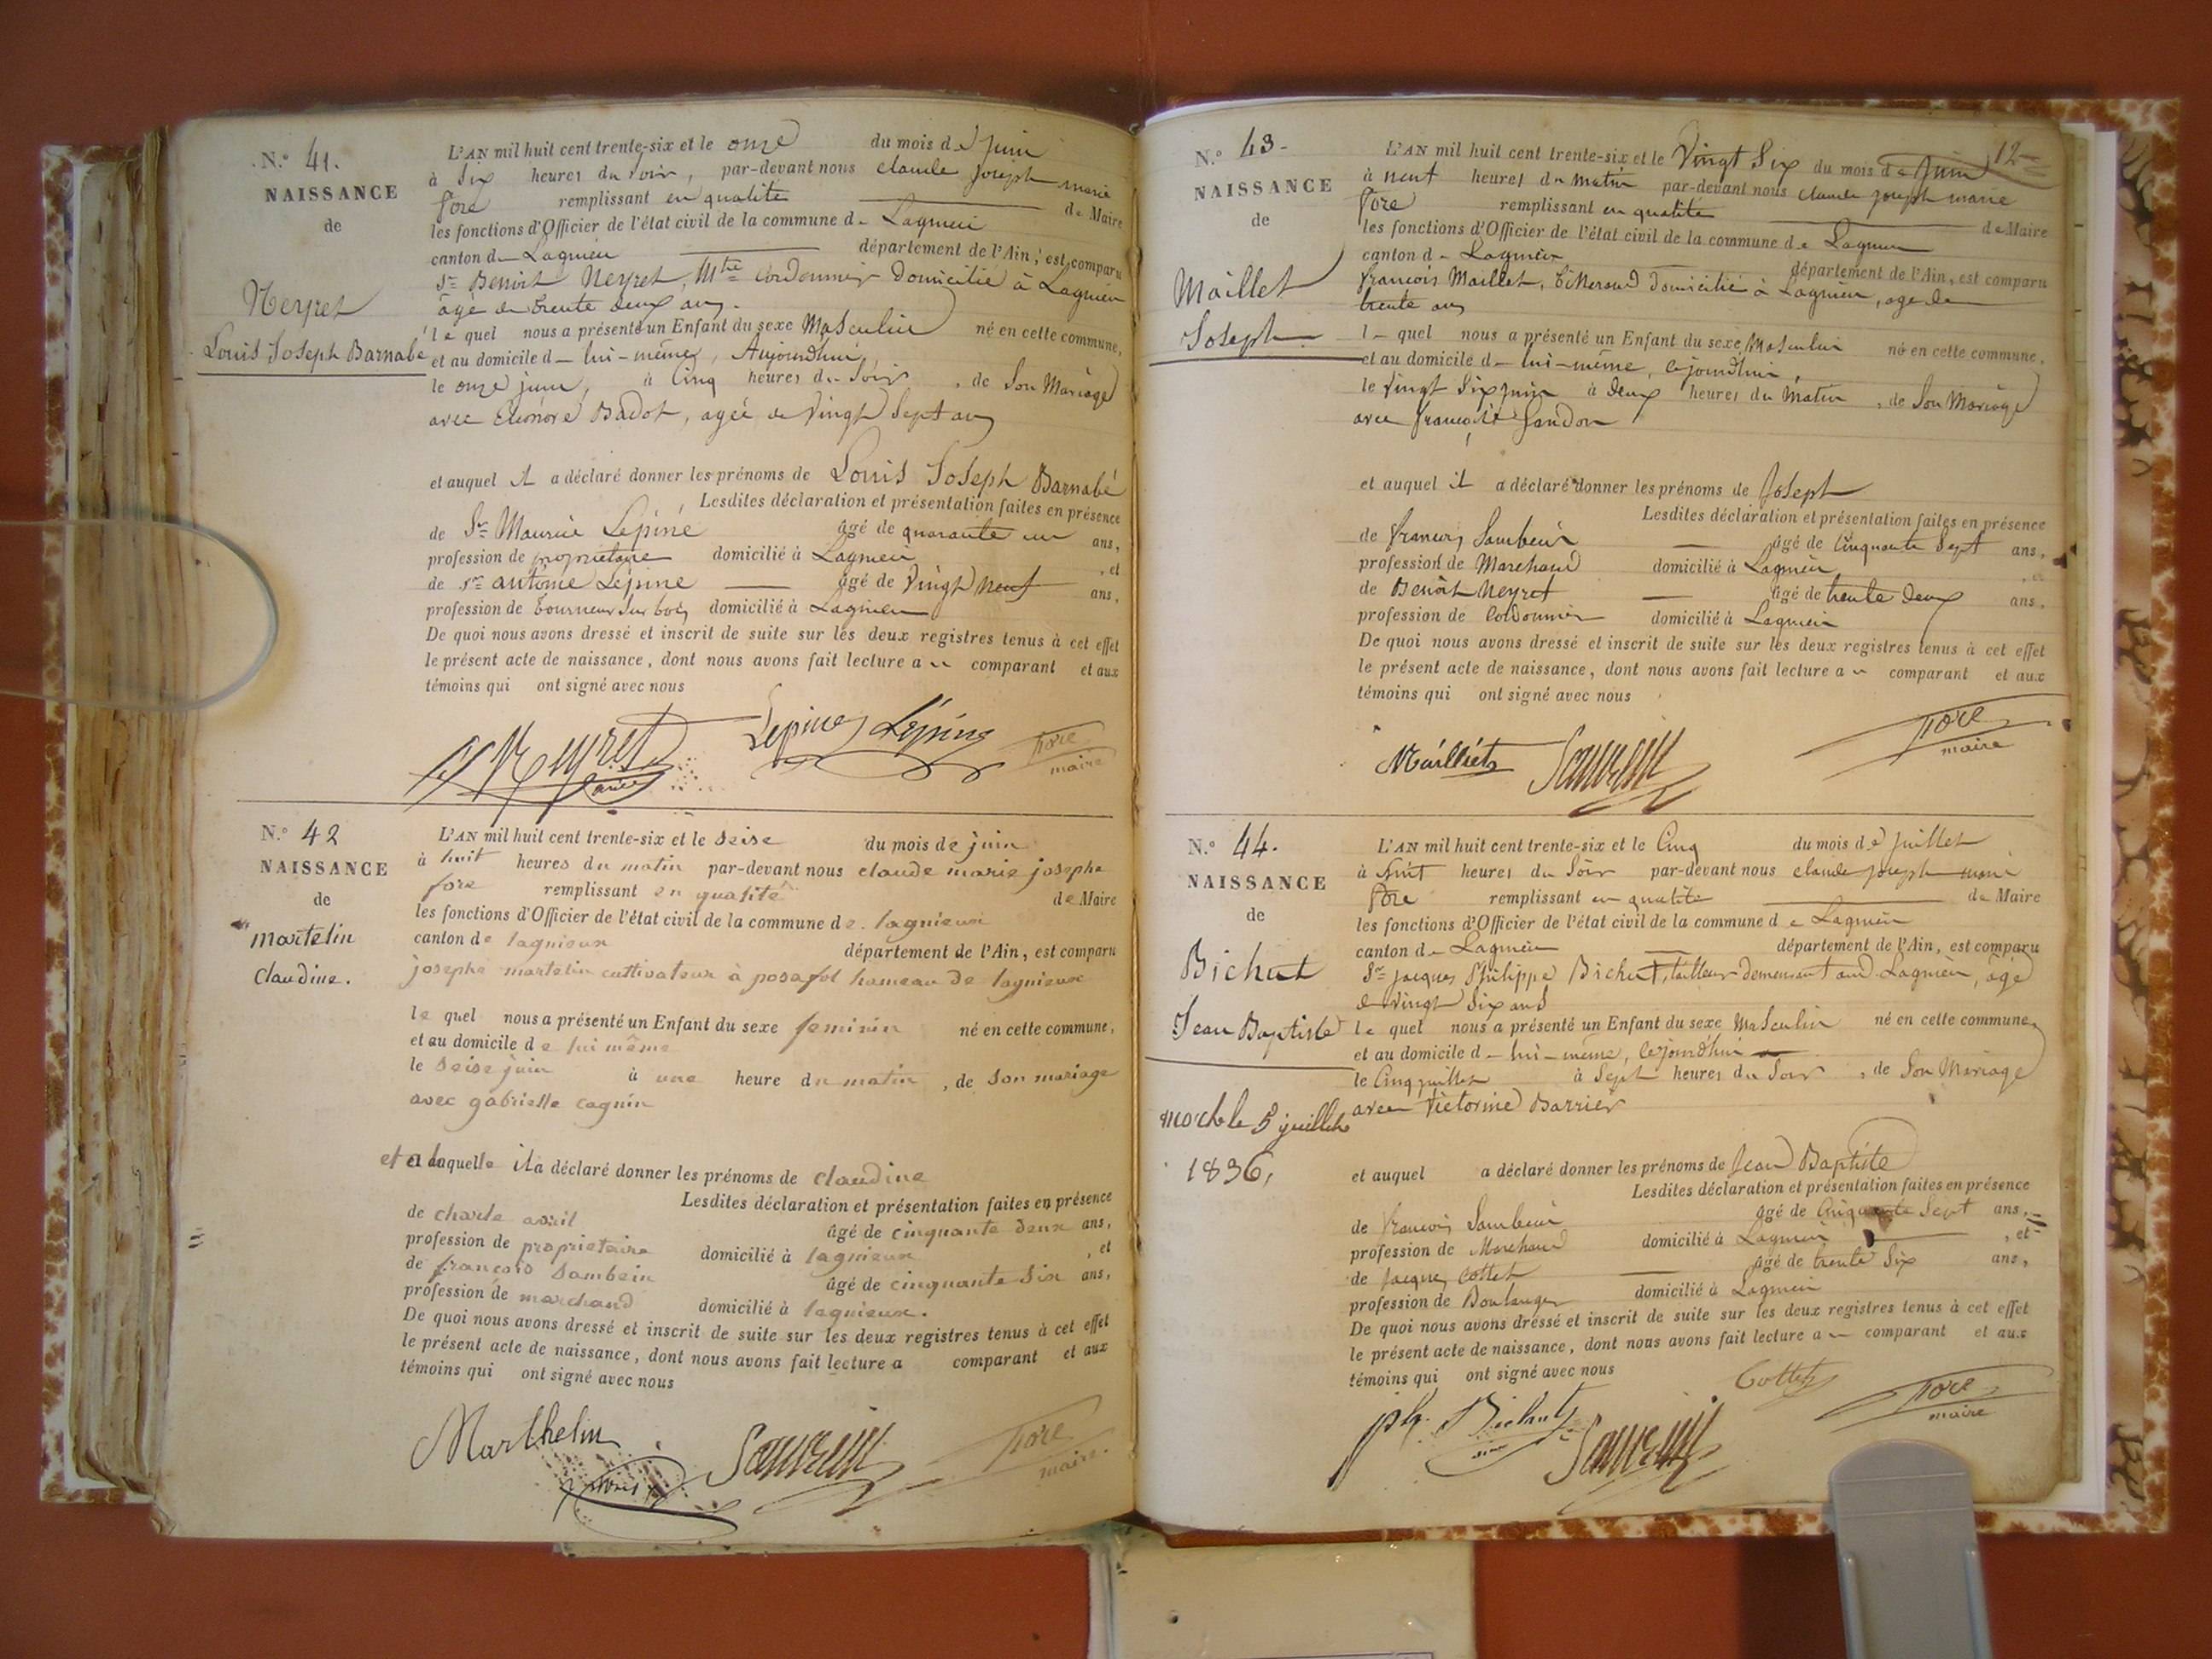 N.° 41.
NAISSANCE
de
Neyret
Louis Joseph Barnabé
L'AN mil huit cent trente-six et le onze du mois de juin
à Six heures du Soir, par-devant nous claude joseph marie
fore remplissant en qualité de Maire
les fonctions d'Officier de l'état civil de la commune de Lagnieu
canton de Lagnieu département de l'Ain, est comparu
Sr Benoit Neyret, Mtre Cordonnier Domicilié à Lagnieu
âgé de trente deux ans.
le quel nous a présenté un Enfant du sexe Masculin né en cette commune,
et au domicile d lui-même, Aujourdhui,
le onze juin, à Cinq heures du Soir, de Son Mariage
avec Eléonore Badot, agée de Vingt Sept ans
et auquel il a déclaré donner les prénoms de Louis Joseph Barnabé
Lesdites déclaration et présentation faites en présence
de Sr Maurice Lepine âgé de quarante un ans,
profession de propriétaire domicilié à Lagnieu, et
de sr antoine Lépine âgé de Vingt Neuf ans,
profession de tourneur Sur bois domicilié à Lagnieu
De quoi nous avons dressé et inscrit de suite sur les deux registres tenus à cet effet
le présent acte de naissance, dont nous avons fait lecture au comparant et aux
témoins qui ont signé avec nous
Neyret Lepine Lépine fore
maire
N.° 42
NAISSANCE
de
martelin
claudine.
L'AN mil huit cent trente-six et le seise du mois de juin
à huit heures du matin par-devant nous claude marie josephe
fore remplissant en qualité de Maire
les fonctions d'Officier de l'état civil de la commune de lagnieux
canton de lagnieux département de l'Ain, est comparu
josephe martelin cultivateur à posafol hameau de lagnieux
le quel nous a présenté un Enfant du sexe feminin né en cette commune,
et au domicile de lui même
le seise juin à une heure du matin, de son mariage
avec gabrielle cagnin
et a laquelle il a déclaré donner les prénoms de claudine
Lesdites déclaration et présentation faites en présence
de charle avril âgé de cinquante deux ans,
profession de proprietaire domicilié à lagnieux, et
de françois sambein âgé de cinquante six ans,
profession de marchand domicilié à lagnieux.
De quoi nous avons dressé et inscrit de suite sur les deux registres tenus à cet effet
le présent acte de naissance, dont nous avons fait lecture a comparant et aux
témoins qui ont signé avec nous
Marthelin fore
maire.
12
N.° 43
NAISSANCE
de
Maillet
Joseph
L'AN mil huit cent trente-six et le Vingt Six du mois de Juin
à neuf heures du matin par-devant nous claude joseph marie
fore remplissant en qualité de Maire
les fonctions d'Officier de l'état civil de la commune de Lagnieu
canton d Lagnieu département de l'Ain, est comparu
françois Maillet, domicilié à Lagnieu, age de
trente ans
l quel nous a présenté un Enfant du sexe Masculin né en cette commune,
et au domicile d lui-même, cejourdhui,
le Vingt Six juin à deux heures du Matin, de Son Mariage
avec françoise Gandon
et auquel il a déclaré donner les prénoms de Joseph
Lesdites déclaration et présentation faites en présence
de françois Sambein âgé de Cinquante Sept ans,
profession de Marchand domicilié à Lagnieu, et
de Benoit Neyret âgé de trente deux ans,
profession de Cordonnier domicilié à Lagnieu
De quoi nous avons dressé et inscrit de suite sur les deux registres tenus à cet effet
le présent acte de naissance, dont nous avons fait lecture au comparant et aux
témoins qui ont signé avec nous
Mailliet fore
maire
N.° 44.
NAISSANCE
de
Bichut
Jean Baptiste
mort le 5 juillet
1836,
L'AN mil huit cent trente-six et le Cinq du mois de juillet
à huit heures du Soir par-devant nous claude joseph marie
fore remplissant en qualité de Maire
les fonctions d'Officier de l'état civil de la commune de Lagnieu
canton d Lagnieu département de l'Ain, est comparu
Sr jacques Philippe Bichut, tailleur demeurant aud. Lagnieu, âgé
de Vingt Six ans
le quel nous a présenté un Enfant du sexe Masculin né en cette commune,
et au domicile d lui-même, cejourdhui
le Cinq juillet à Sept heures du Soir, de Son Mariage
avec Victorine Barrier
et auquel a déclaré donner les prénoms de Jean Baptiste
Lesdites déclaration et présentation faites en présence
de françois Sambein âgé de Cinquante Sept ans,
profession de Marchand domicilié à Lagnieu, et
de Jacques Cottet âgé de trente Six ans,
profession de Boulanger domicilié à Lagnieu
De quoi nous avons dressé et inscrit de suite sur les deux registres tenus à cet effet
le présent acte de naissance, dont nous avons fait lecture au comparant et aux
témoins qui ont signé avec nous
ph. Bichut Cottet fore
maire